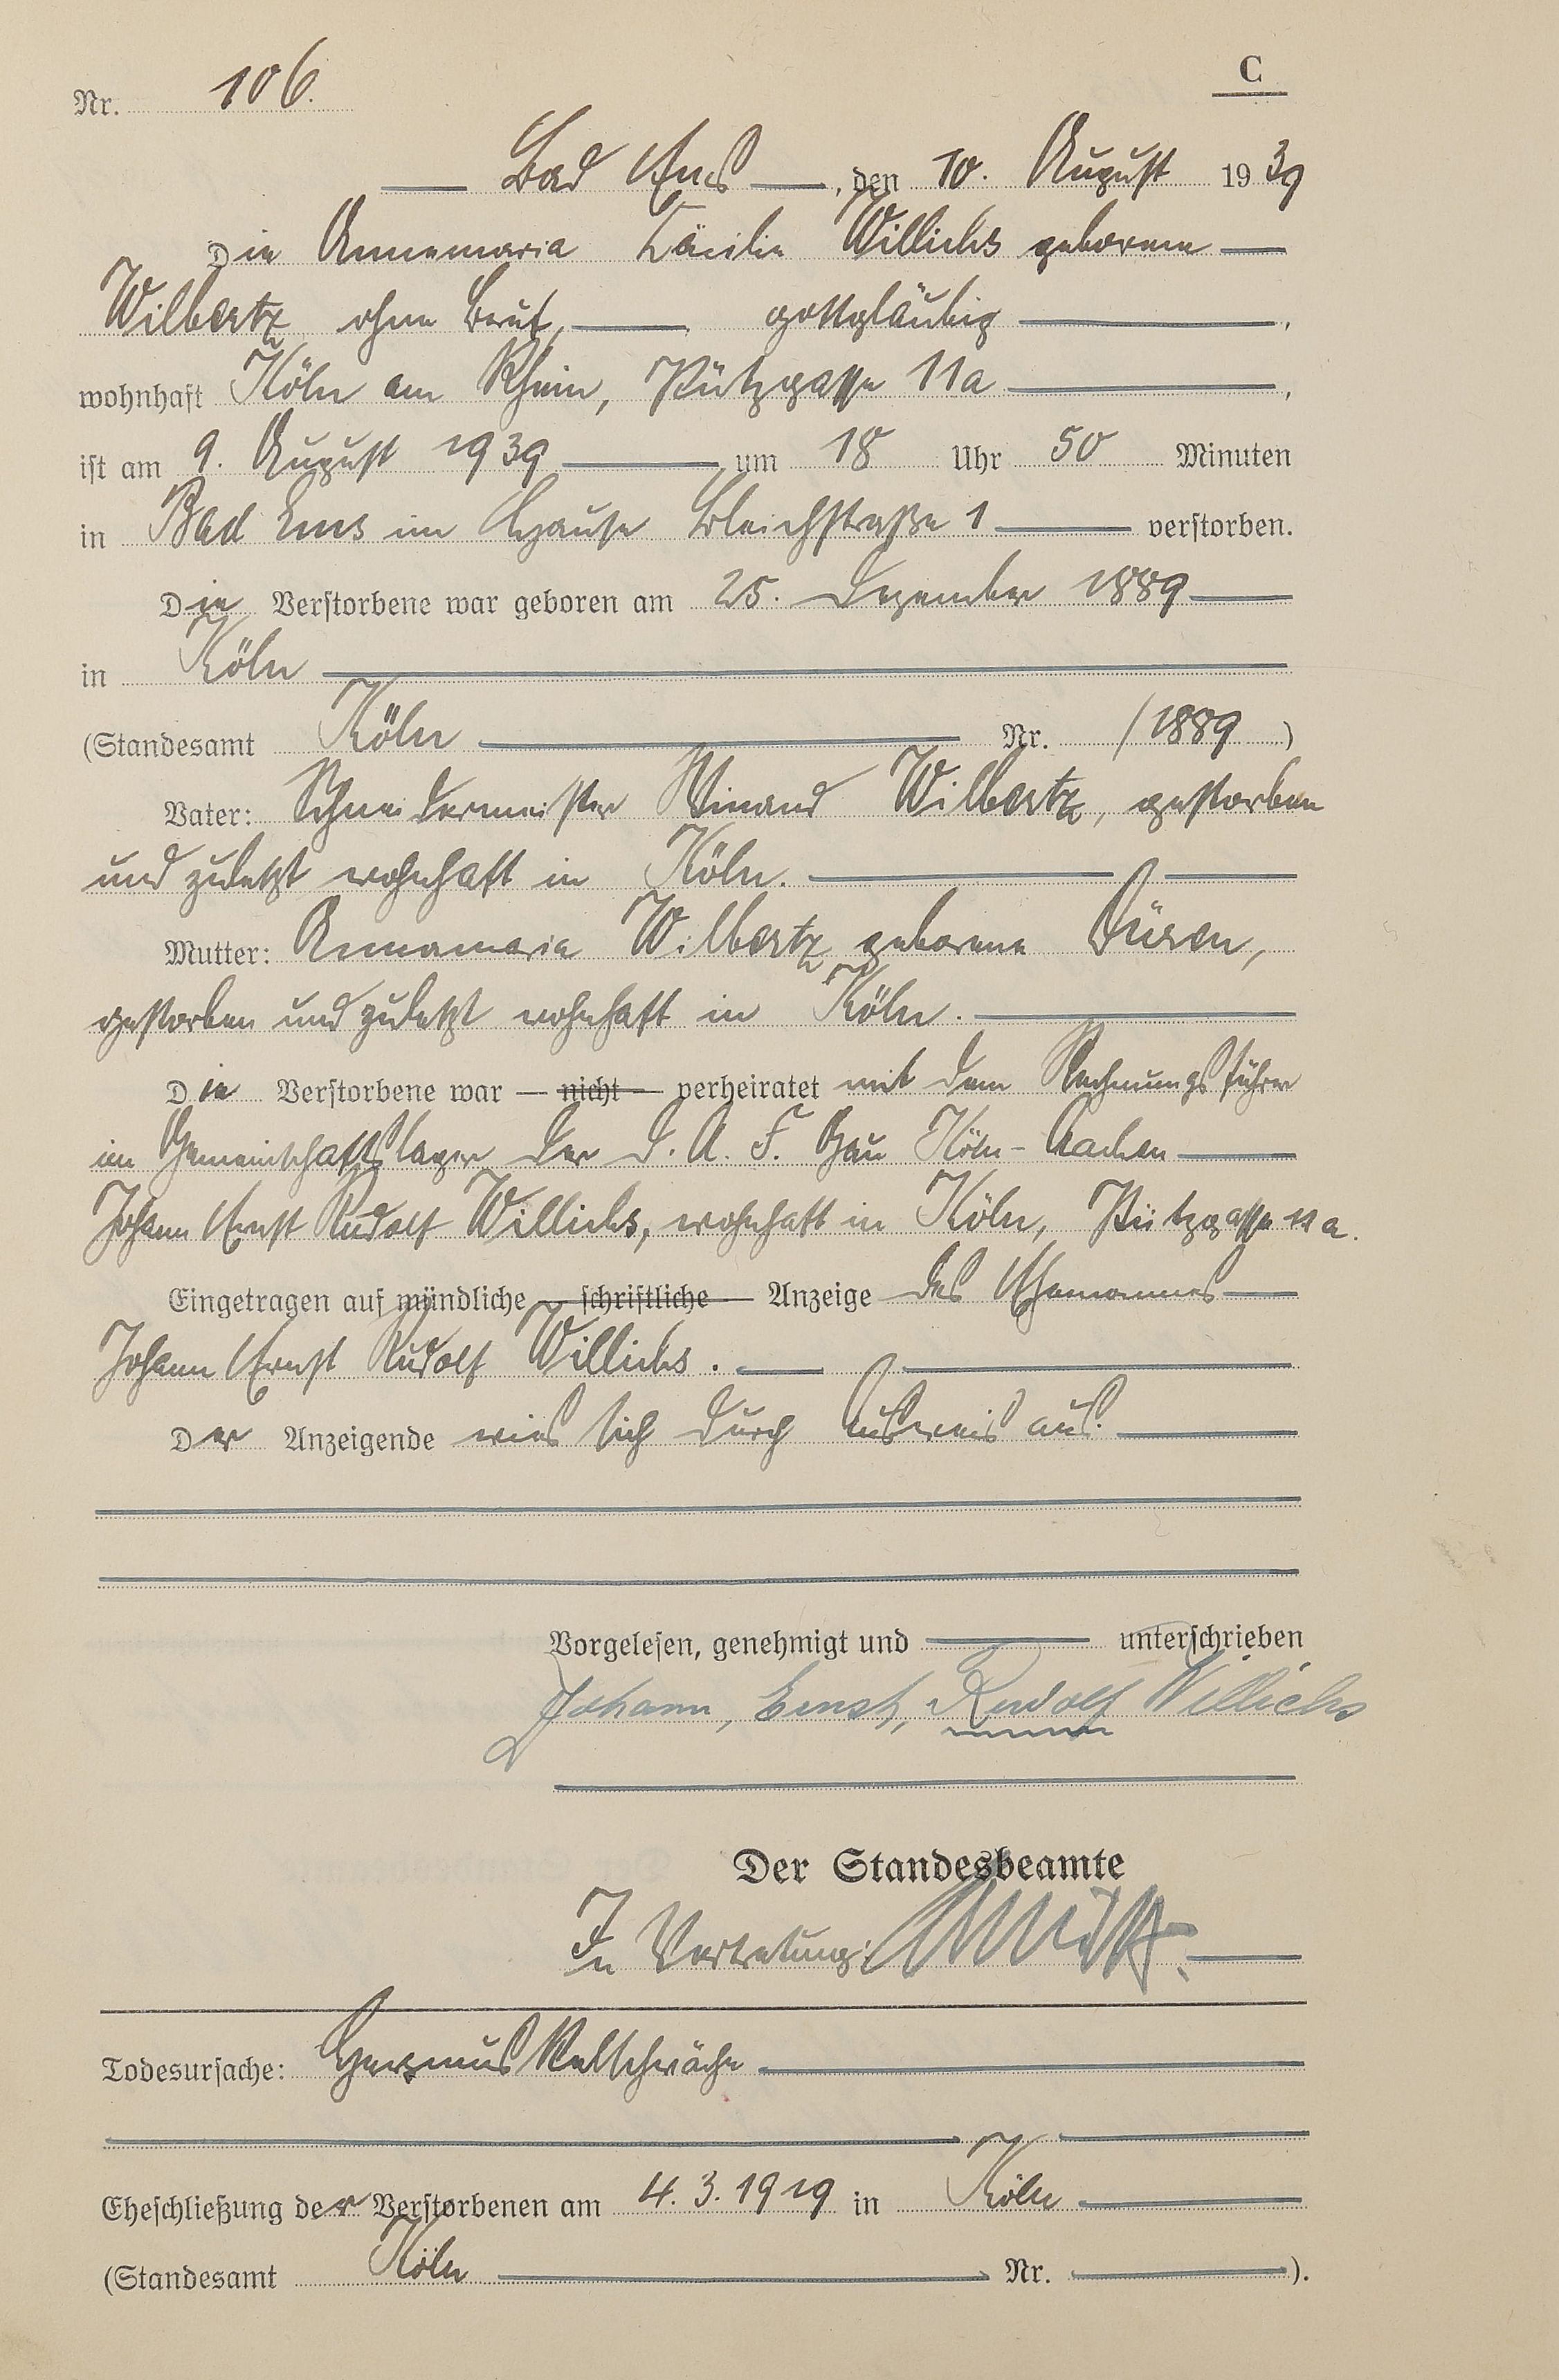 Nr. 106. C
Bad Ems, den 10. August 1939
Die Annemaria Cäcilie Willichs geborene
Wilbertz, ohne Beruf, gottgläubig,
wohnhaft Köln am Rhein, Pützgasse 11a,
ist am 9. August 1939 um 18 Uhr 50 Minuten
in Bad Ems im Hause Bleichstraße 1 verstorben.
Die Verstorbene war geboren am 25. Dezember 1889
in Köln
(Standesamt Köln Nr. /1889)
Vater: Schneidermeister Winand Wilbertz, gestorben
und zuletzt wohnhaft in Köln.
Mutter: Annamaria Wilbertz geborene Düren,
gestorben und zuletzt wohnhaft in Köln.
Die Verstorbene war — nicht — verheiratet mit dem Rechnungsführer
im Gemeinschaftslager der D.A.F. Gau Köln-Aachen
Johann Ernst Rudolf Willichs, wohnhaft in Köln, Pützgasse 11a.
Eingetragen auf mündliche — schriftliche — Anzeige des Ehemannes
Johann Ernst Rudolf Willichs.
Der Anzeigende wies sich durch Ausweis aus.
Vorgelesen, genehmigt und unterschrieben
Johann, Ernst, Rudolf Willichs
Der Standesbeamte
In Vertretung:
Todesursache: Herzmuskelschwäche
Eheschließung der Verstorbenen am 4.3.1919 in Köln
(Standesamt Köln Nr. ).